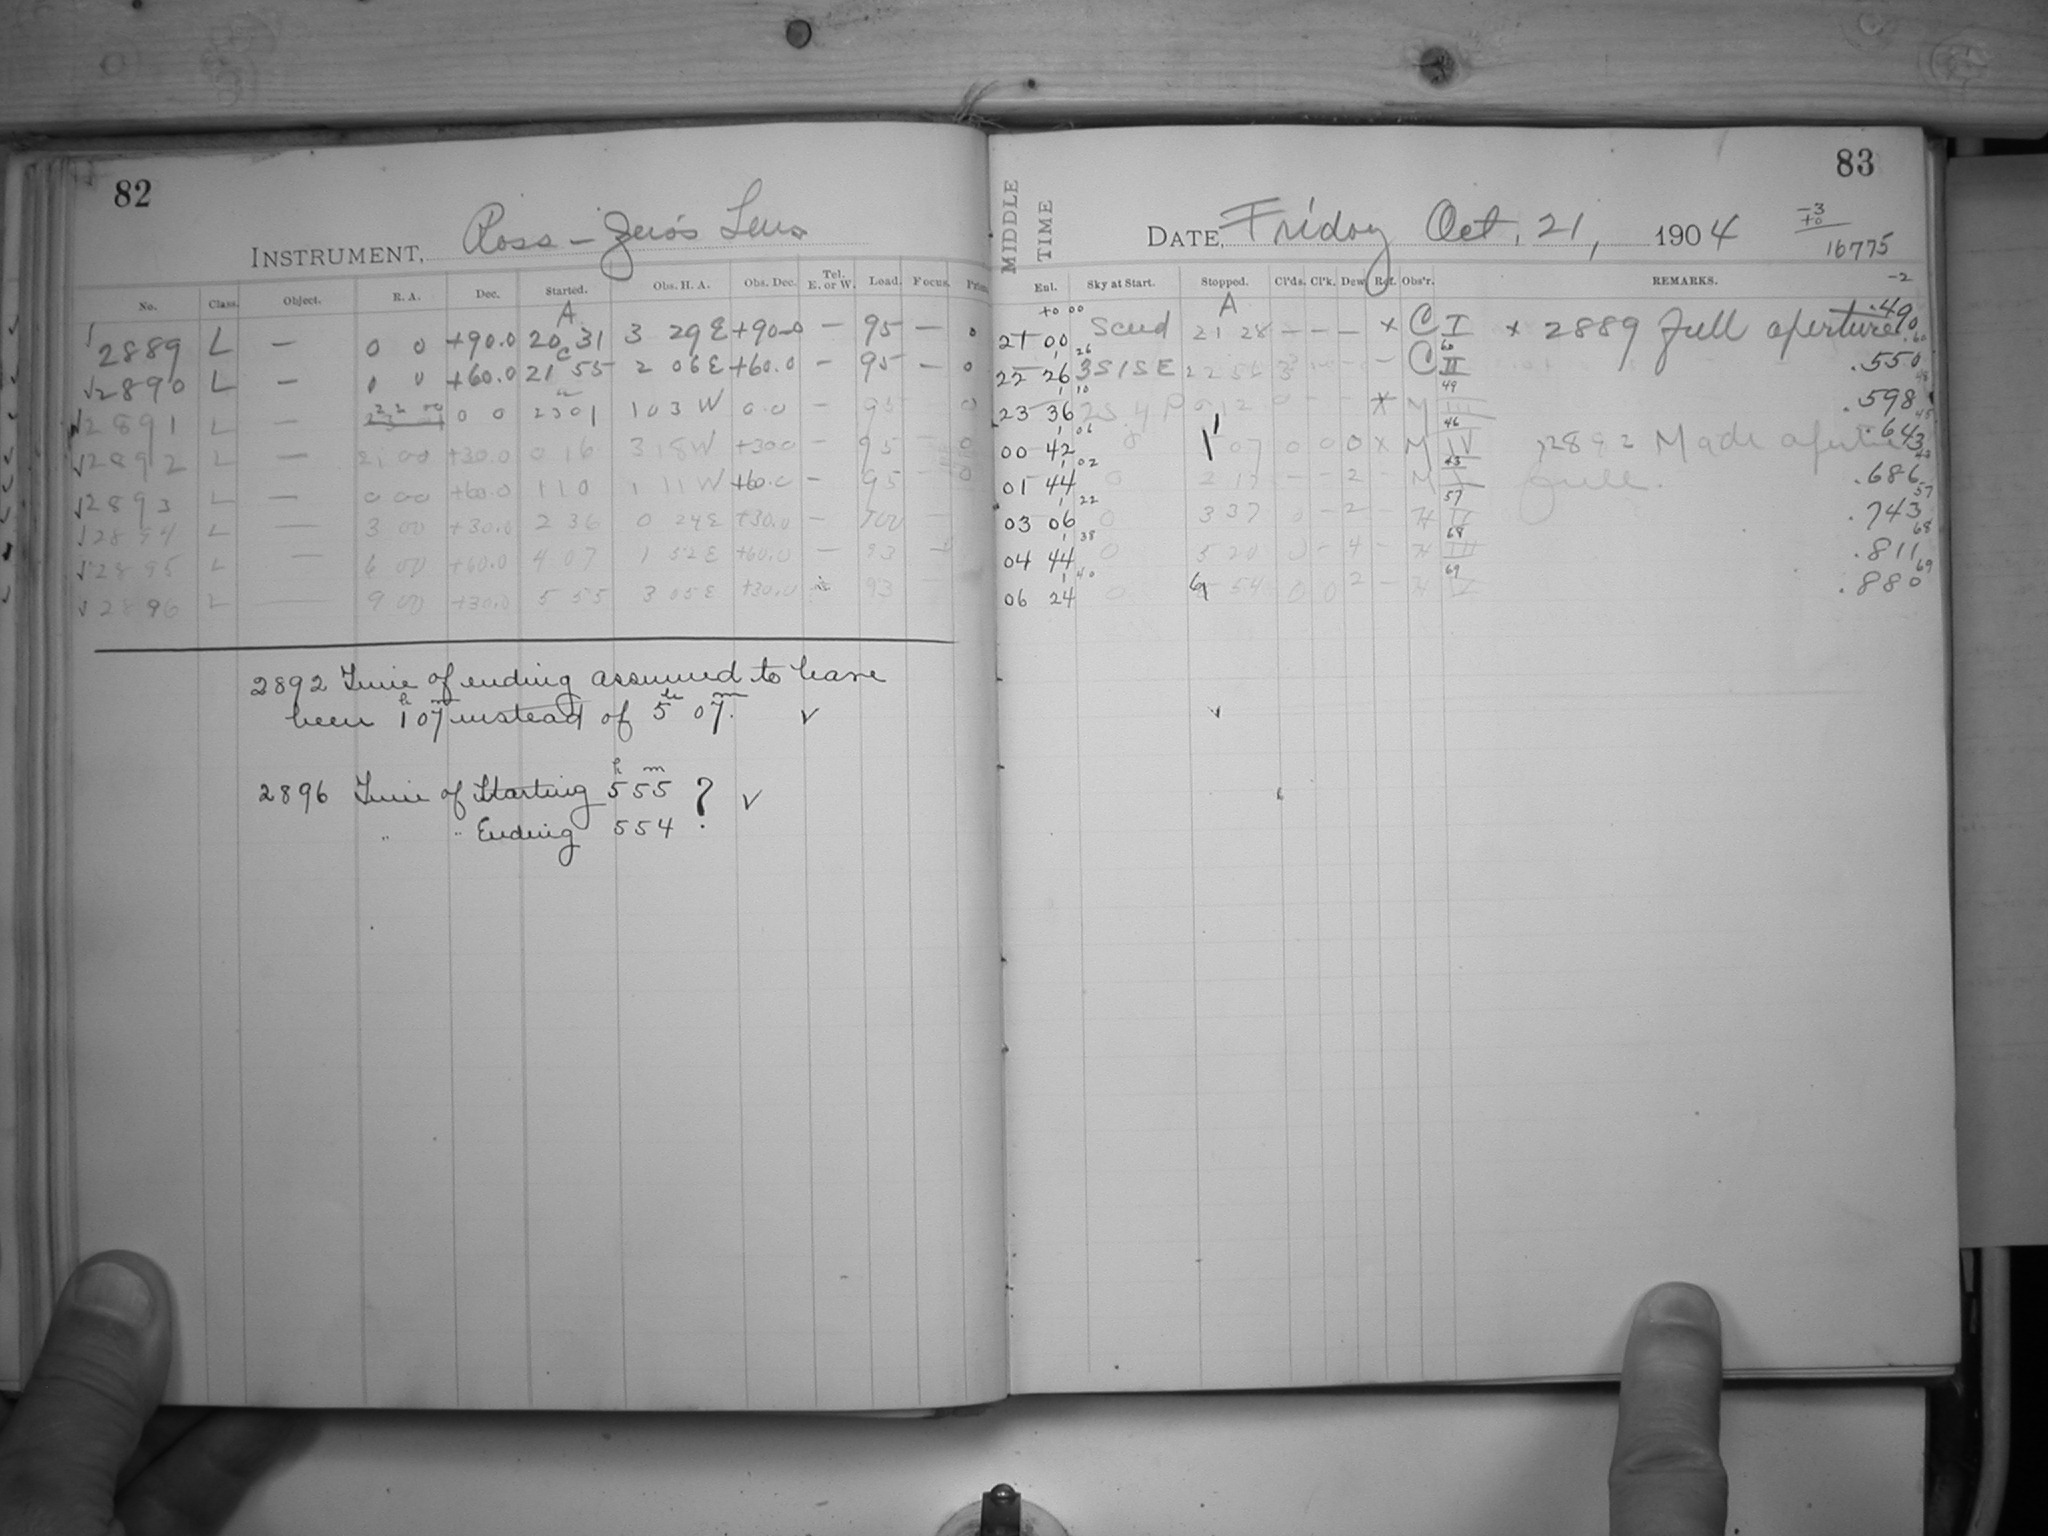 82
INSTRUMENT, Ross - Zeiss Lens
No. Class. Object. R. A. Dec. Started. Obs. H. A. Obs. Dec. Tel. E. or W. Load. Focus.
A
2889 L — 0 0 +90.0 20 31 3 29 E +90.0 — 95 — 0
√2890 L — 0 0 +60.0 21 55 2 06 E +60.0 — 95 — 0
2891 L — 0 0 23 01 1 03 W 0.0 — 95 0
√2892 L — 21 00 +30.0 0 16 3 18 W +30.0 — 95 — 0
√2893 L — 0 00 +60.0 1 10 1 11 W +60.0 — 95 — 0
√2894 L — 3 00 +30.0 2 36 0 24 E +30.0 — 100 —
√2895 L — 6 00 +60.0 4 07 1 52 E +60.0 — 93 —
√2896 L — 9 00 +30.0 5 55 3 05 E +30.0 93
2892 Time of ending assumed to have
been 1h 07m instead of 5h 07m. √
2896 Time of Starting 5h 55m ? √
" " Ending 5 54
83
MIDDLE TIME
DATE, Friday Oct. 21, 1904
-3
+0
16775
Enl. Sky at Start. Stopped. Cl'ds. Cl'k. Dew. Ref. Obs'r. REMARKS. -2
+0 00 A
21 00 Scud 21 28 — — — x C I x 2889 full aperture .490
1 26 60 60
22 26 3S1SE 22 56 3 — C II .550
1 10 49 48
23 36 0 12 0 — — x M III .598
1 06 46 45
00 42 0 1 07 0 0 0 x M IV 2892 Made aperture .643
1 02 43 43
01 44 0 2 17 — — 2 — M V full. .686
1 22 57 57
03 06 0 3 37 0 — 2 — H .743
1 38 68 68
04 44 0 5 20 0 — 4 — H .811
1 40 69 69
06 24 0 6 54 0 0 2 — H .880